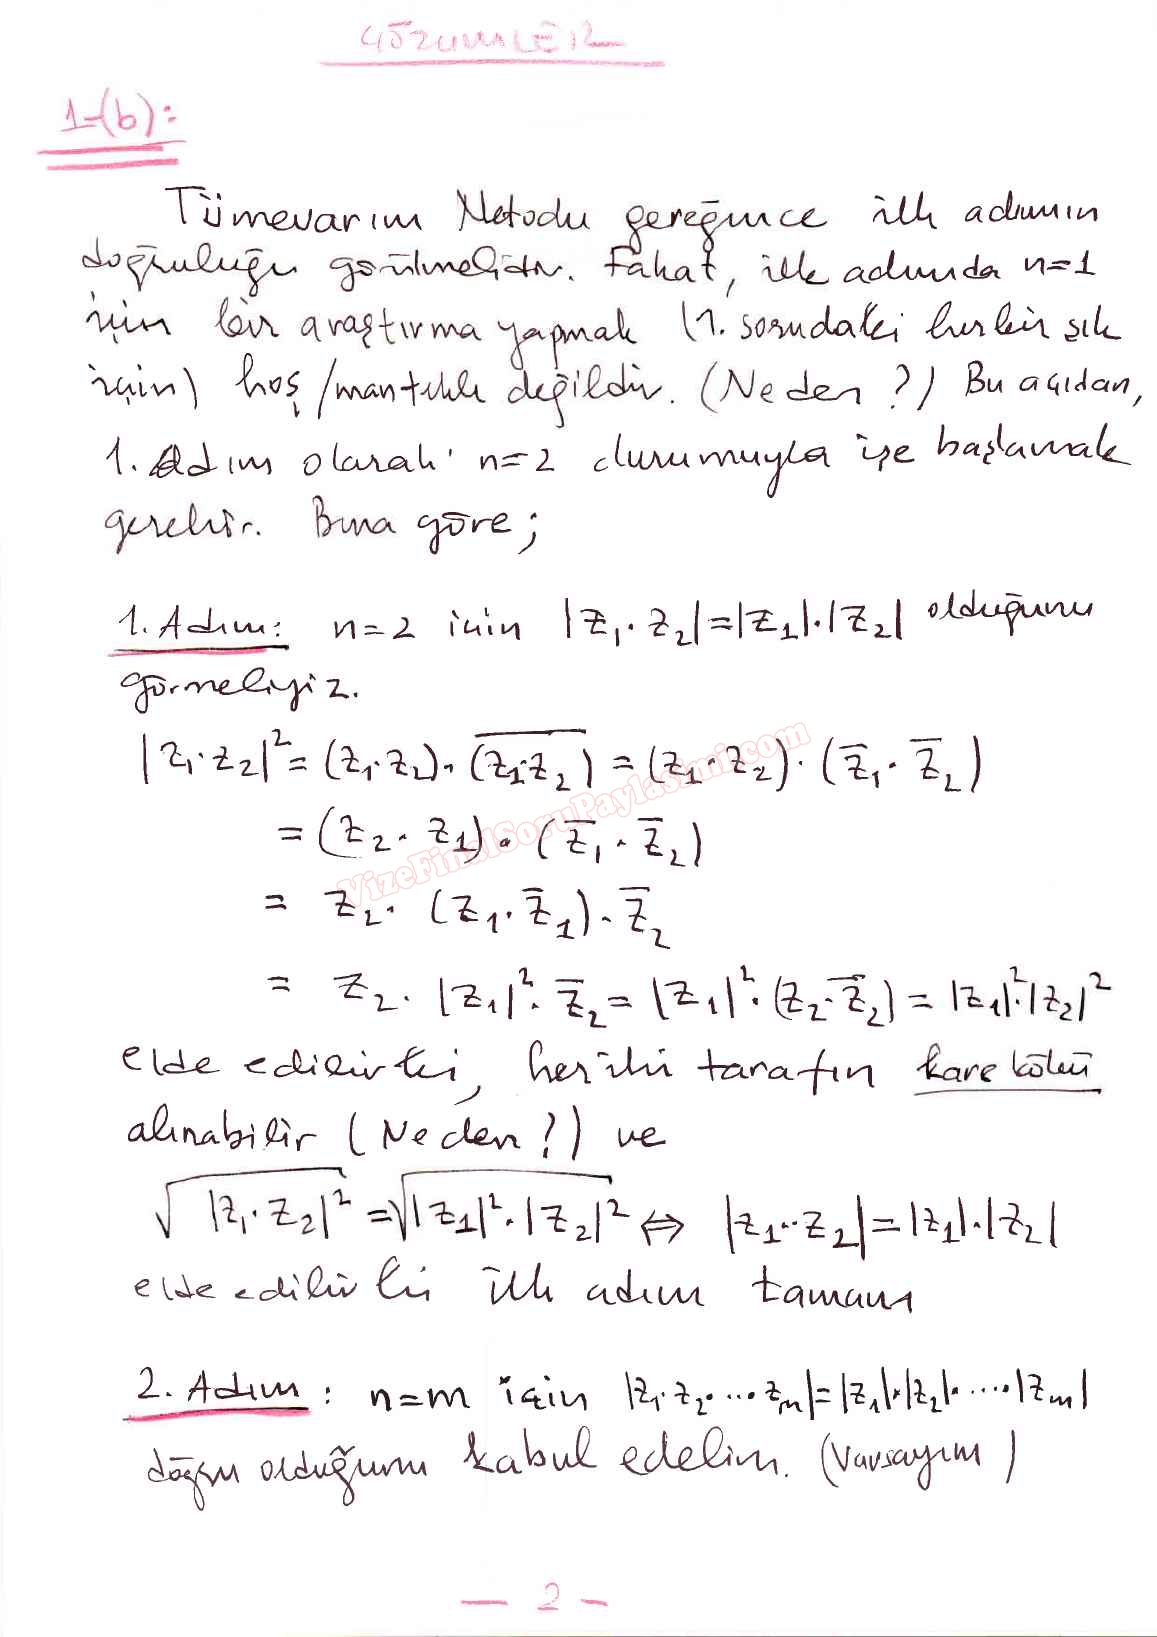 ÇÖZÜMLER
1-(b):
Tümevarım Metodu gereğince ilk adımın
doğruluğu görülmelidir. Fakat, ilk adımda n=1
için bir araştırma yapmak (1. sorudaki herbir şık
için) hoş/mantıklı değildir. (Neden ?) Bu açıdan,
1. Adım olarak n=2 durumuyla işe başlamak
gerekir. Buna göre;
1. Adım: n=2 için |z₁·z₂|=|z₁|·|z₂| olduğunu
görmeliyiz.
|z₁·z₂|²=(z₁·z₂)·(z̅₁̅·̅z̅₂̅)=(z₁·z₂)·(z̄₁·z̄₂)
=(z₂·z₁)·(z̄₁·z̄₂)
= z₂·(z₁·z̄₁)·z̄₂
= z₂·|z₁|²·z̄₂=|z₁|²·(z₂·z̄₂)=|z₁|²·|z₂|²
elde edilir ki, her iki tarafın kare kökü
alınabilir (Neden?) ve
√|z₁·z₂|²=√|z₁|²·|z₂|² ⇔ |z₁·z₂|=|z₁|·|z₂|
elde edilir ki ilk adım tamam
2. Adım: n=m için |z₁·z₂·...z_m|=|z₁|·|z₂|·....|z_m|
doğru olduğunu kabul edelim. (Varsayım)
VizeFinalSoruPaylasimi.com
— 2 -